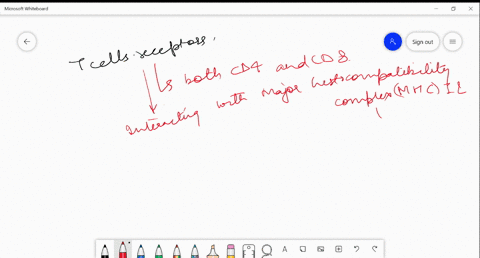 Microsoft Whiteboard
Sign out
T cells receptors.
both CD4 and CD8
Interacting with major histocompatibility
complex (MHC) II
A